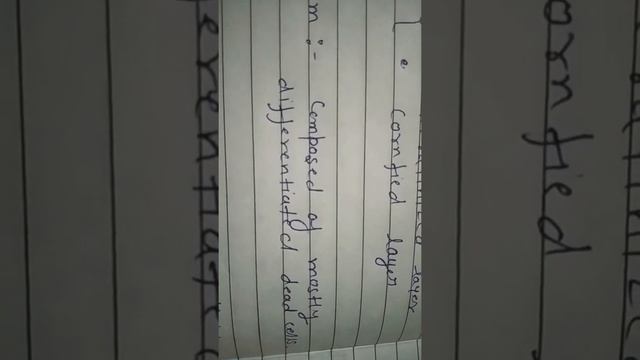 layer
e. Cornfied layer
m :- Composed of mostly
differentiated dead cells